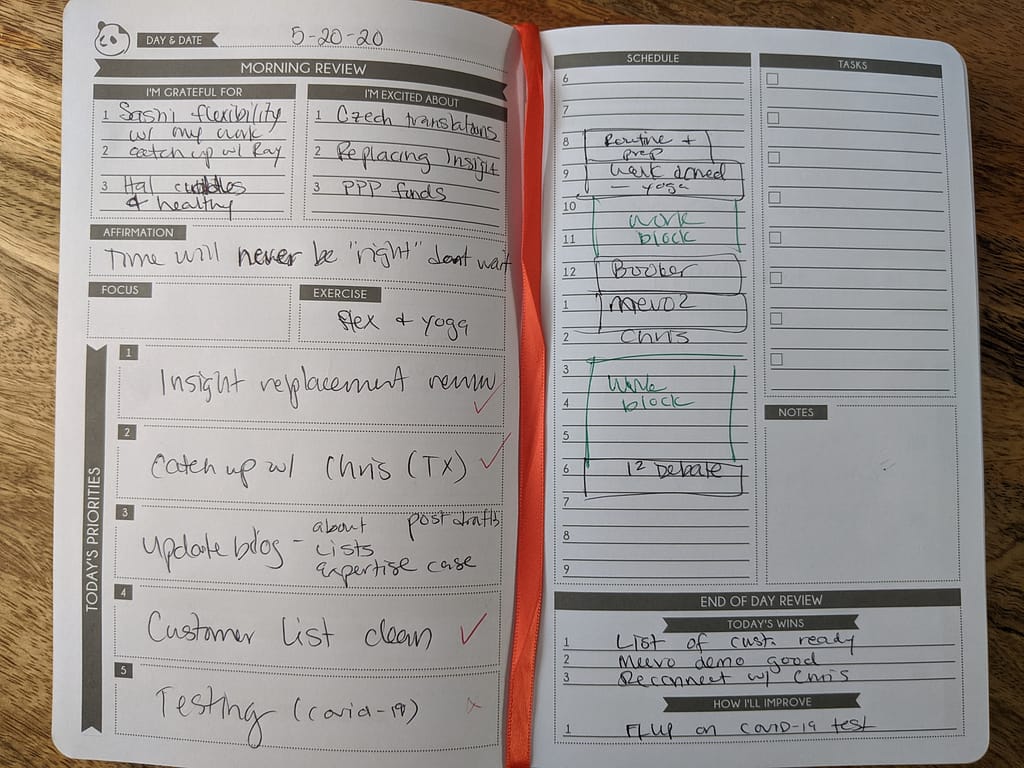 DAY & DATE 5-20-20
MORNING REVIEW
I'M GRATEFUL FOR
1 Sashi flexibility
w/ my work
2 catch up w/ Ray
3 Hal cuddles
& healthy
I'M EXCITED ABOUT
1 Czech translations
2 Replacing Insight
3 PPP funds
AFFIRMATION
Time will never be "right" dont wait
FOCUS
EXERCISE
flex + yoga
TODAY'S PRIORITIES
1
Insight replacement
2
Catch up w/ Chris (TX)
3
Update blog - about post drafts
Lists
expertise case
4
Customer List clean
5
Testing (covid-19)
SCHEDULE
6
7
8 Routine +
prep
9
- yoga
10 work
11 block
12 Booker
1
2 Chris
3
Work
4 block
5
6 12 Debate
7
8
9
TASKS
NOTES
END OF DAY REVIEW
TODAY'S WINS
1 List of cust. ready
2 Meevo demo good
3 Reconnect w/ Chris
HOW I'LL IMPROVE
1 FLUP on COVID-19 test